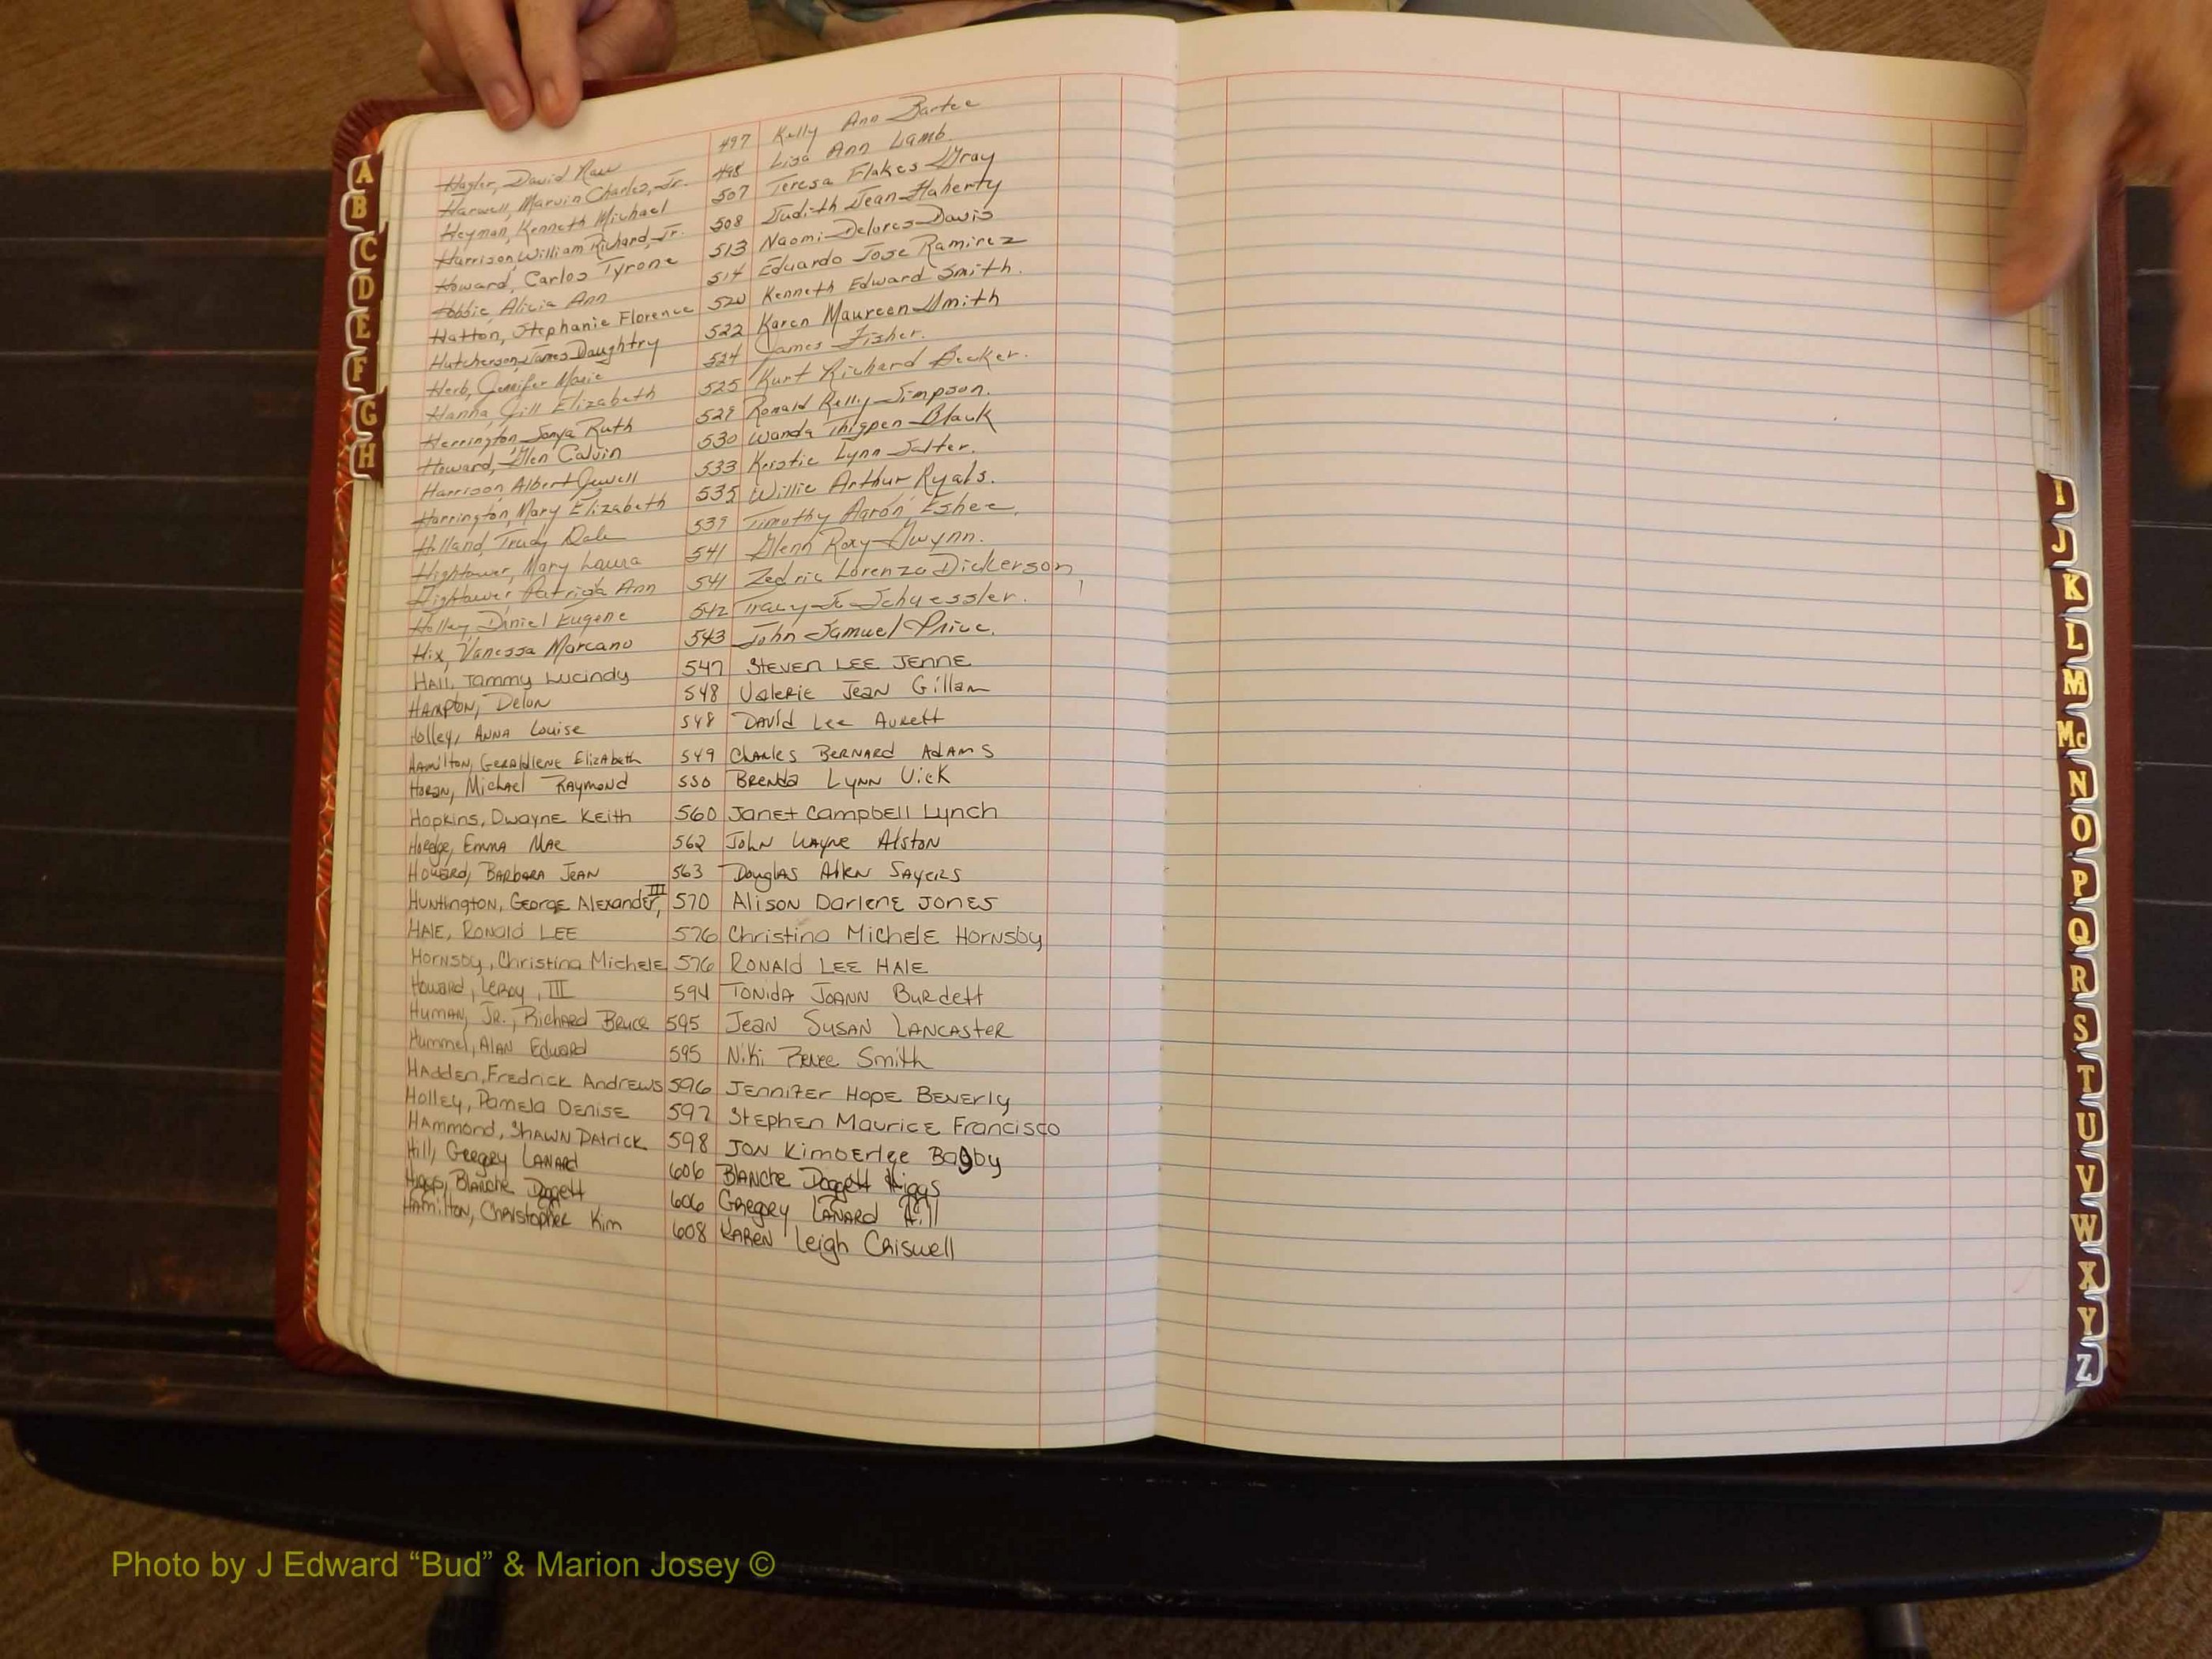 Hagler, David New 497 Kelly Ann Bartee
Harwell, Marvin Charles, Jr. 498 Lisa Ann Lamb.
Heyman, Kenneth Michael 507 Teresa Flakes Gray
Harrison, William Richard, Jr. 508 Judith Jean Flaherty
Howard, Carlos Tyrone 513 Naomi Delores Davis
Hobbie, Alicia Ann 514 Eduardo Jose Ramirez
Hatton, Stephanie Florence 520 Kenneth Edward Smith.
Hutcherson, James Daughtry 522 Karen Maureen Smith
Herb, Jennifer Marie 524 James Fisher.
Hanna, Jill Elizabeth 525 Kurt Richard Becker.
Herrington, Sonya Ruth 529 Ronald Kelly Simpson.
Howard, Glen Calvin 530 Wanda Thigpen Black
Harrison, Albert Jewell 533 Kristie Lynn Salter.
Harrington, Mary Elizabeth 535 Willie Arthur Ryals.
Holland, Trudy Dale 539 Timothy Aaron Eshee.
Hightower, Mary Laura 541 Glenn Roxy Gwynn.
Hightower, Patricia Ann 541 Zedric Lorenzo Dickerson
Holley, Daniel Eugene 542 Tracy Jo Schuessler.
Hix, Vanessa Marcano 543 John Samuel Price.
HAll, Tammy Lucindy 547 STEVEN LEE JENNE
HAMPtON, Delon 548 VAlERIE JEAN Gillam
Holley, ANNA Louise 548 DAVID Lee AuRett
HAMiltON, GERAldlENE ElizAbeth 549 ChARlES BERNARD AdAMS
HORAN, MichAEl RAYMOND 550 BRENDA LYNN VicK
Hopkins, DwAyNE KEith 560 JANEt CAmpbEll Lynch
Hoedge, EMMA MAE 562 JohN WAYNE AlstoN
HowARD, BARbARA JEAN 563 DouglAS AllEN SAYERS
HuNtingtoN, GEorgE AlExANdEr, III 570 Alison DArlENE JONES
HAlE, RoNAld LEE 576 ChristinA MichElE HORNSby
HorNSby, ChristinA MichElE 576 RONAld LEE HAlE
HowARd, LERoy, III 594 TONIdA JOANN BuRdett
HumAN, JR., RichARD BRuce 595 JEAN SuSAN LANCASteR
Hummel, AlAN EdwARD 595 Niki RENEE Smith
HAddEN, FrEdrick ANdrEwS 596 JENNifER HopE BEVErly
HollEy, PAmElA DENiSE 597 StEphEN MAuricE FrANciSco
HAmmoNd, ShAwN PAtrick 598 JON KimbErlEE BAgby
Hill, GREgoRy LANARd 606 BlANche Doggett Higgs
Higgs, BlANche Doggett 606 GREgoRy LANARd Hill
HAmiltoN, ChRistopheR Kim 608 KAREN Leigh CRiswell
A
B
C
D
E
F
G
H
I
J
K
L
M
Mc
N
O
P
Q
R
S
T
U
V
W
X
Y
Z
Photo by J Edward “Bud” & Marion Josey ©